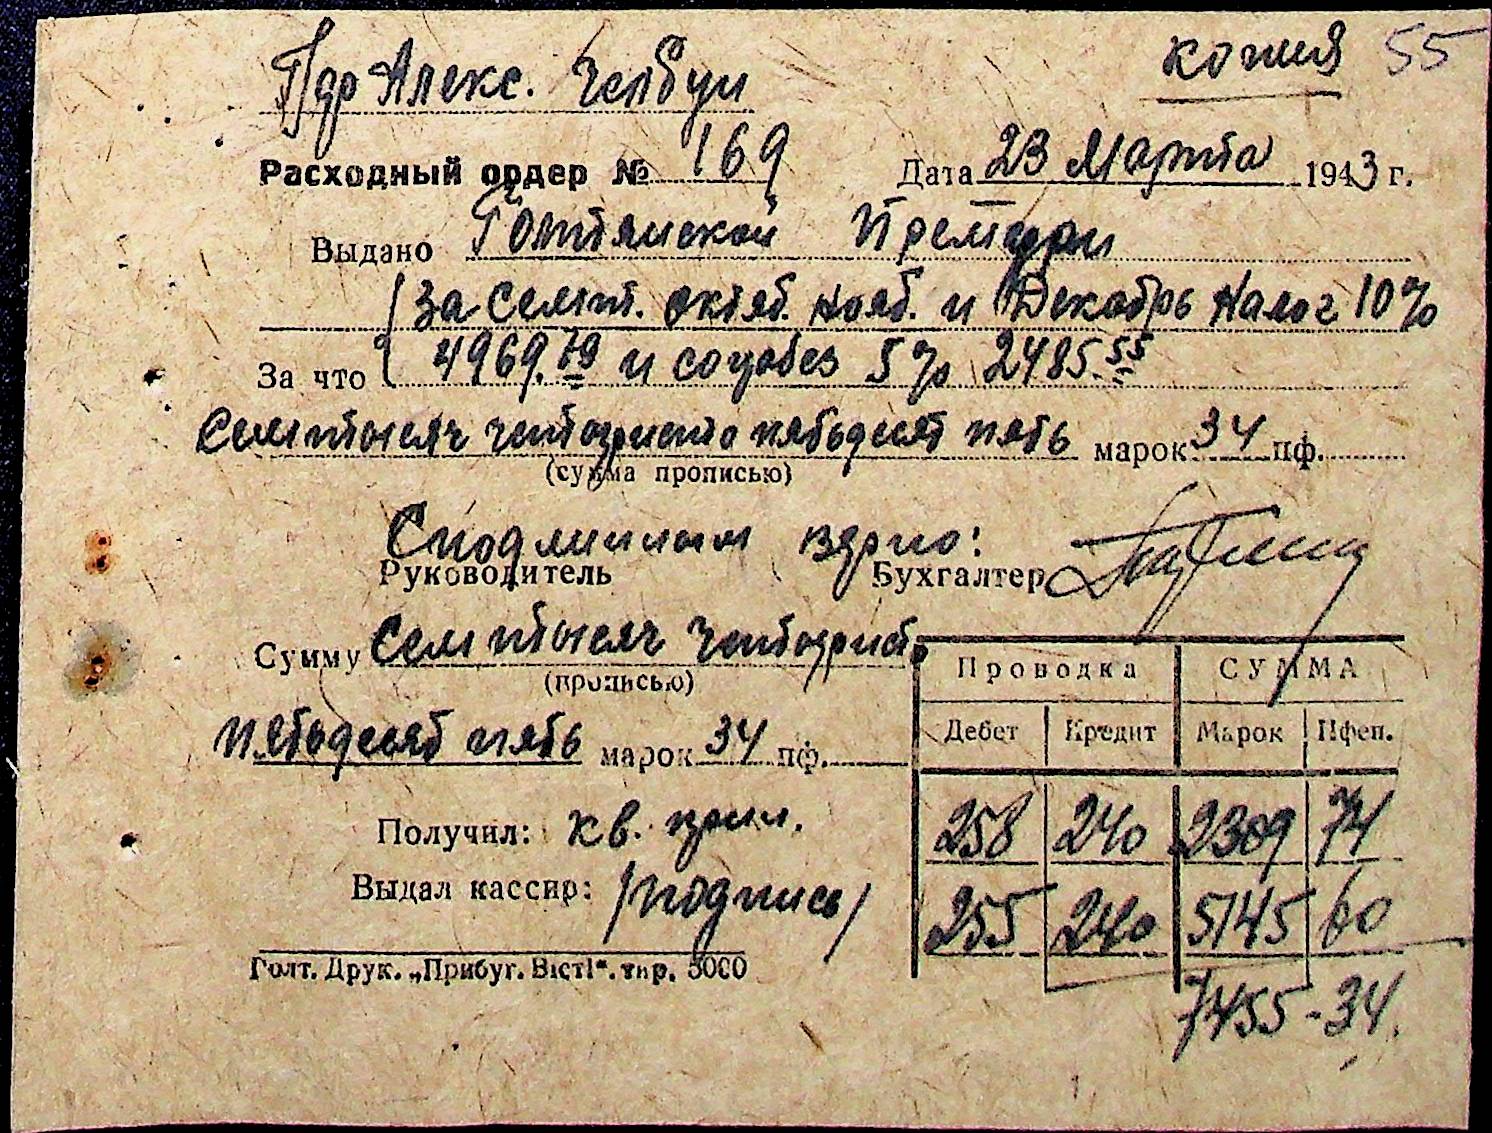 копия 55
Пдр Алекс.
Расходный ордер № 169 Дата 23 Марта 1943 г.
Выдано Голтянской Претури
За Сент. октяб. нояб. и Декабрь Налог 10%
За что 4969.79 и соцобез 5% 2485.55
Семь тысяч четыриста пятьдесят пять марок 34 пф.
(сумма прописью)
С подлинным верно:
Руководитель Бухгалтер
Сумму Семь тысяч Четырист.
(прописью)
пятьдесят пять марок 34 пф.
Проводка СУММА
Дебет Кредит Марок Пфен.
Получил: кв. прил.
258 240 2309 74
Выдал кассир: /подпись/
255 240 5145 60
Голт. Друк. „Прибуг. Вісті“. тир. 5000
7455-34.